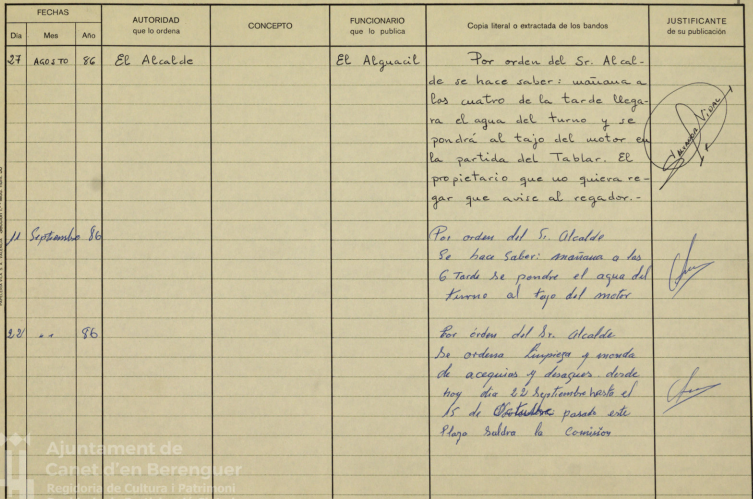 FECHAS
Día Mes Año
AUTORIDAD
que lo ordena
CONCEPTO
FUNCIONARIO
que lo publica
Copia literal o extractada de los bandos
JUSTIFICANTE
de su publicación
27 AGOSTO 86 El Alcalde El Alguacil Por orden del Sr. Alcal-
de se hace saber: mañana a
las cuatro de la tarde llega-
ra el agua del turno y se
pondrá al tajo del motor en
la partida del Tablar. El
propietario que no quiera re-
gar que avise al regador.-
11 Septiembre 86 Por orden del Sr. Alcalde
Se hace Saber: mañana a las
6 Tarde se pondre el agua del
turno al tajo del motor
22 " " 86 Por órden del Sr. Alcalde
Se ordena Limpieza y monda
de acequias y desagues desde
hoy dia 22 Septiembre hasta el
15 de Octubre pasado este
Plazo Saldra la Comision
Ajuntament de
Canet d'en Berenguer
Regidoria de Cultura i Patrimoni